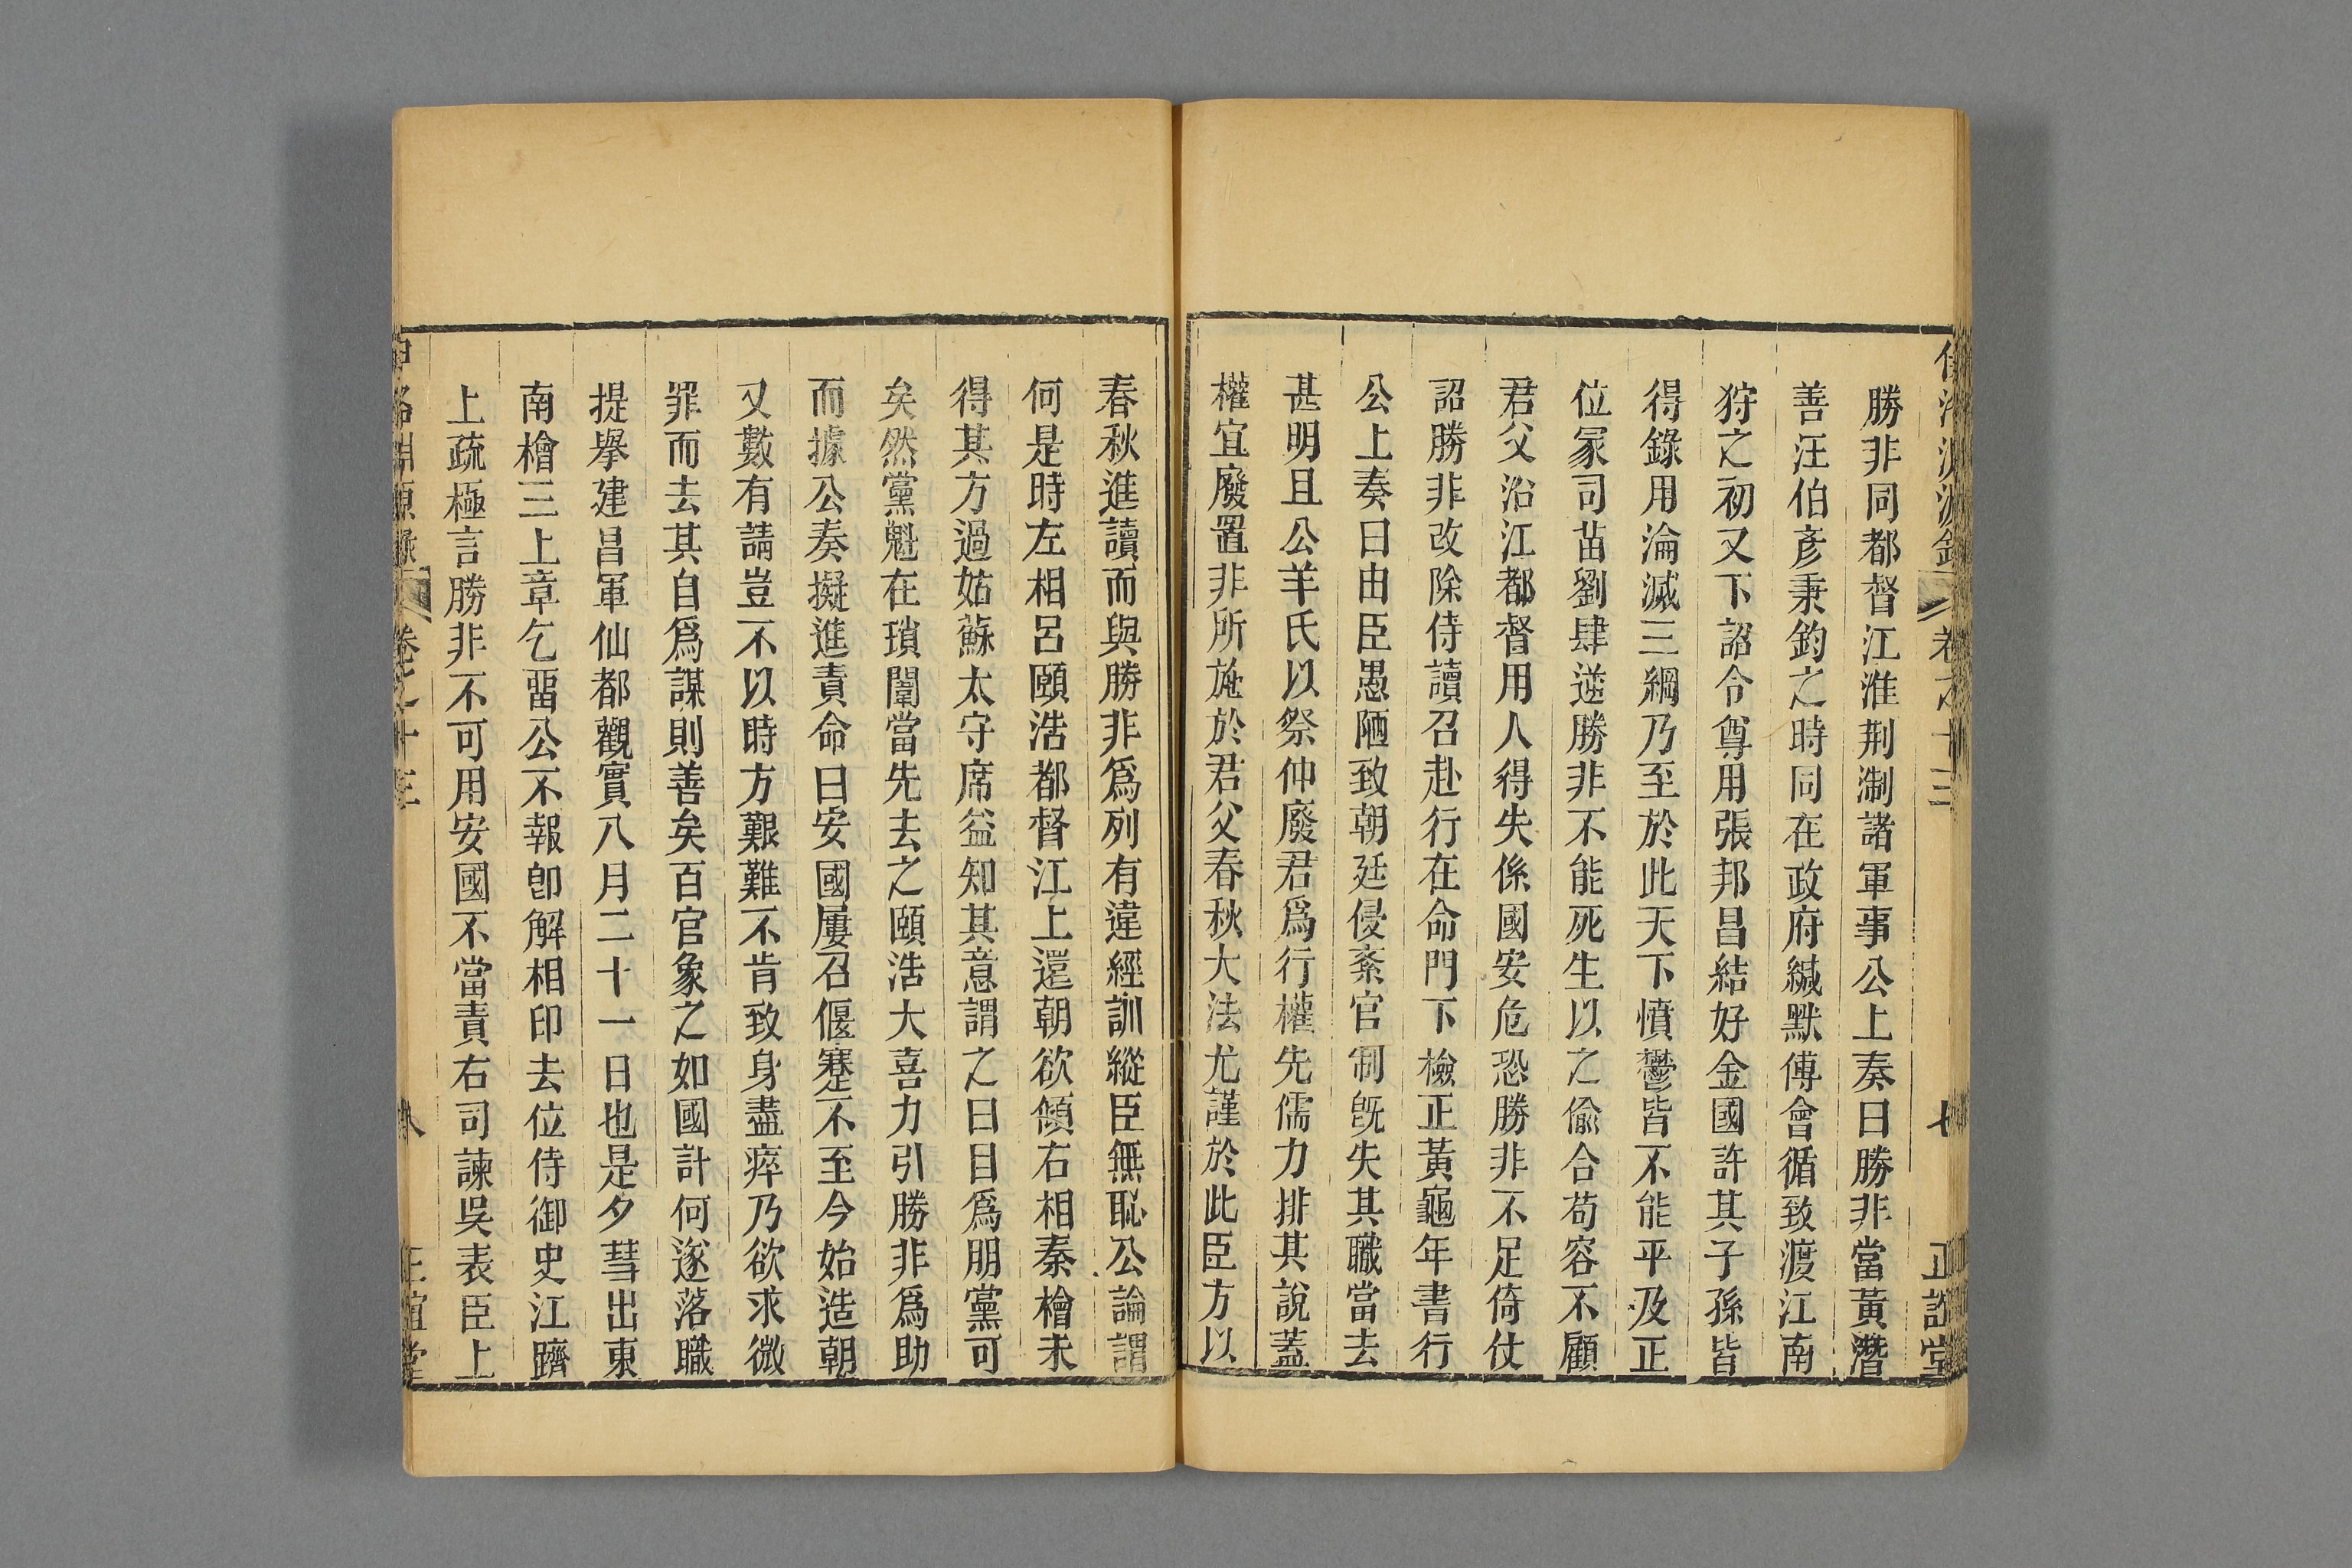 勝非同都督江淮荆淛諸軍事公上奏曰勝非當黃潛
善汪伯彥秉鈞之時同在政府緘默傅會循致渡江南
狩之初又下詔令尊用張邦昌結好金國許其子孫皆
得錄用淪滅三綱乃至於此天下憤鬱皆不能平及正
位冢司苗劉肆逆勝非不能死生以之偸合苟容不顧
君父沿江都督用人得失係國安危恐勝非不足倚仗
詔勝非改除侍讀召赴行在命門下檢正黃龜年書行
公上奏曰由臣愚陋致朝廷侵紊官制旣失其職當去
甚明且公羊氏以祭仲廢君爲行權先儒力排其說蓋
權宜廢置非所施於君父春秋大法尤謹於此臣方以
春秋進讀而與勝非爲列有違經訓縱臣無恥公論謂
何是時左相呂頤浩都督江上還朝欲傾右相秦檜未
得其方過姑蘇太守席益知其意謂之曰目爲朋黨可
矣然黨魁在瑣闥當先去之頤浩大喜力引勝非爲助
而據公奏擬進責命曰安國屢召偃蹇不至今始造朝
又數有請豈不以時方艱難不肯致身盡瘁乃欲求微
罪而去其自爲謀則善矣百官象之如國計何遂落職
提舉建昌軍仙都觀實八月二十一日也是夕彗出東
南檜三上章乞畱公不報卽解相印去位侍御史江躋
上疏極言勝非不可用安國不當責右司諫吳表臣上
卷之十三
八